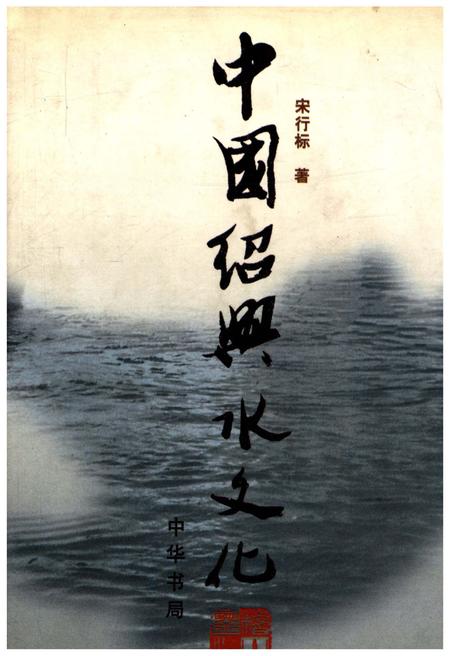 宋行标 著
中國紹興水文化
中华书局